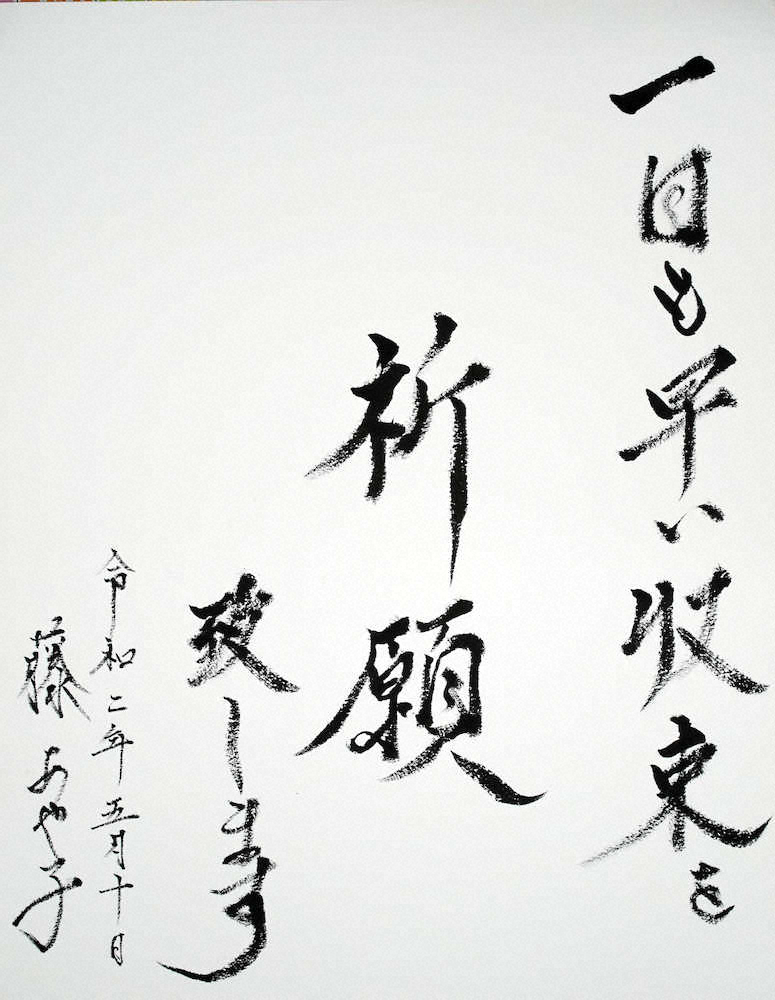 一日も早い収束を
祈願
致します
令和二年五月十日
藤あや子